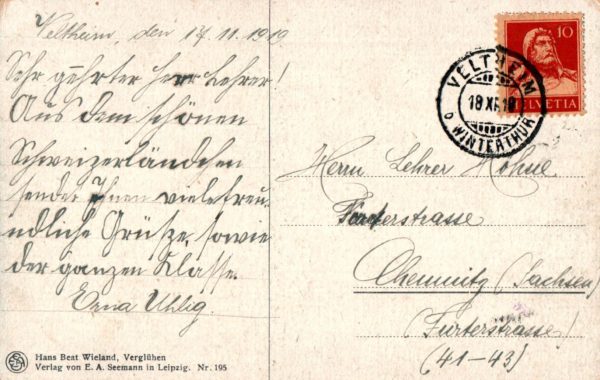 Veltheim, den 17. 11. 1919
Sehr geehrter Herr Lehrer!
Aus dem schönen
Schweizerländchen
sendet Ihnen viele freu-
ndliche Grüße, sowie
der ganzen Klasse.
Erna Uhlig.
10
HELVETIA
VELTHEIM
18 XI 19
b. WINTERTHUR
Herrn Lehrer Höhne
Fürterstrasse
Chemnitz (Sachsen)
(Fürterstrasse)
(41-43)
Hans Beat Wieland, Verglühen
Verlag von E. A. Seemann in Leipzig. Nr. 195